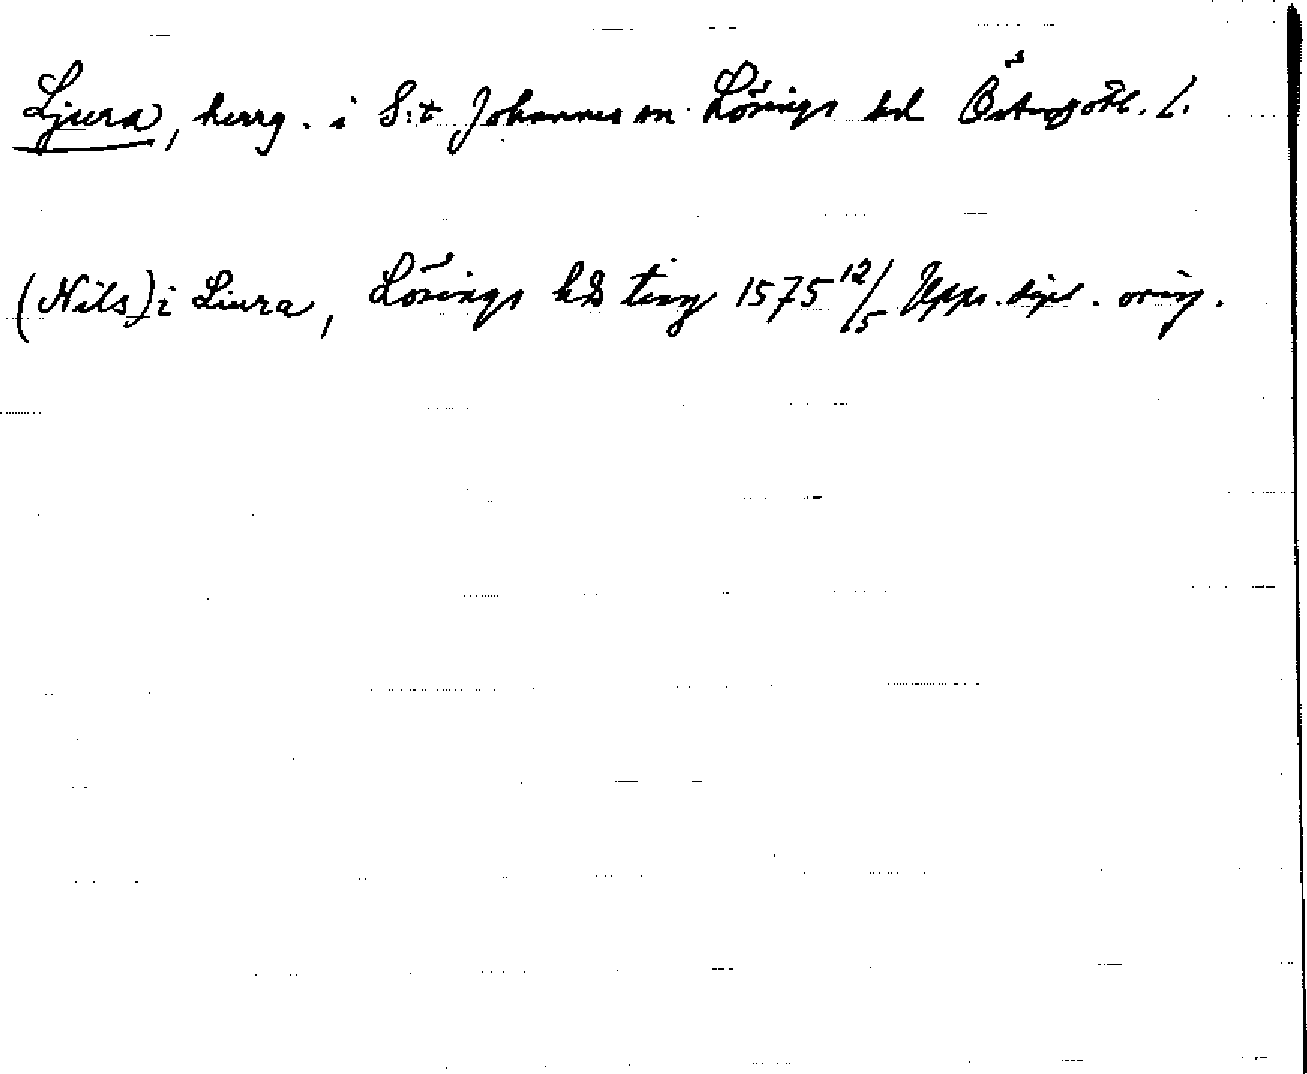 Ljura, herrg. i S:t Johannes sn Lösings hd Östergötl. l.
(Nils) i Liura, Lösings hds ting 1575 12/5 Upps. dipl. orig.